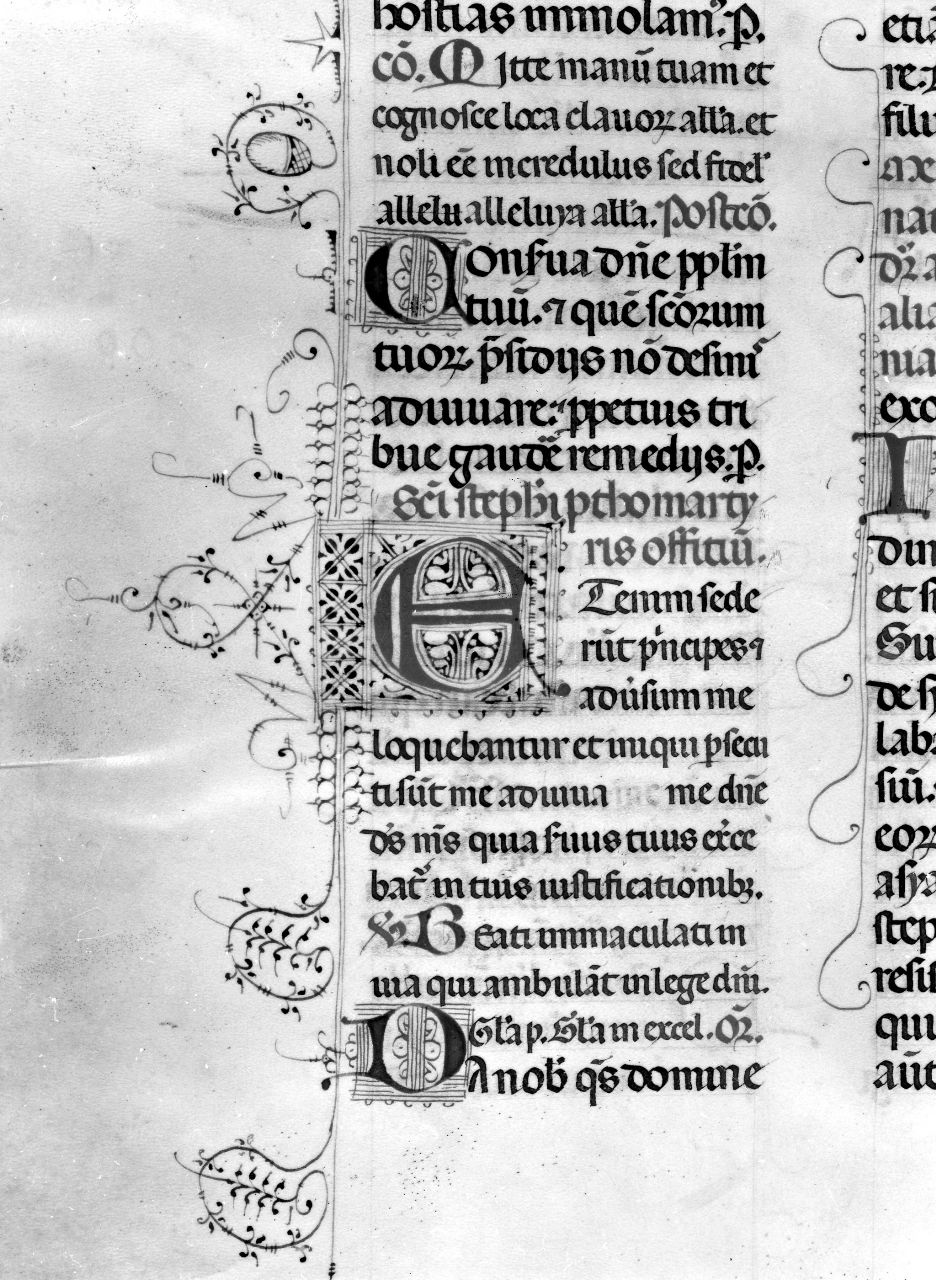 hostias immolam᷒. p.
cō. Mitte manū tuam et
cognosce loca clauoꝝ alła. et
noli eē incredulus sed fidel᷒
allelu alleluya alła. Postcō.
Conẜua dn̄e ppłm
tuū. ⁊ quē sc̄orum
tuoꝝ p̄sidijs nō desinis
adiuuare: ꝑpetuis tri
bue gaudē remedijs. p.
Sc̄i steph̄i pthomarty
ris offitiū.
Etenim sede
rūt pͥncipes ⁊
adúsum me
loquebantur et iniqui ꝑsecu
ti sūt me adiuua me dn̄e
ds̄ ms̄ quia ẜuus tuus ex̓ce
bat᷒ in tuis iustificationibꝫ.
℣. Beati immaculati in
uia qui ambulāt in lege dn̄i.
Gła p. Gła in excel. Or̄.
DA nob᷒ qs̄ domine
etiā
re.
filiu
ax
nat
dr̄ a
alia
nia
exo
I
dun
et si
Su
de h
labı
siū.
eoꝝ
asya
step
resis
qui
aūt